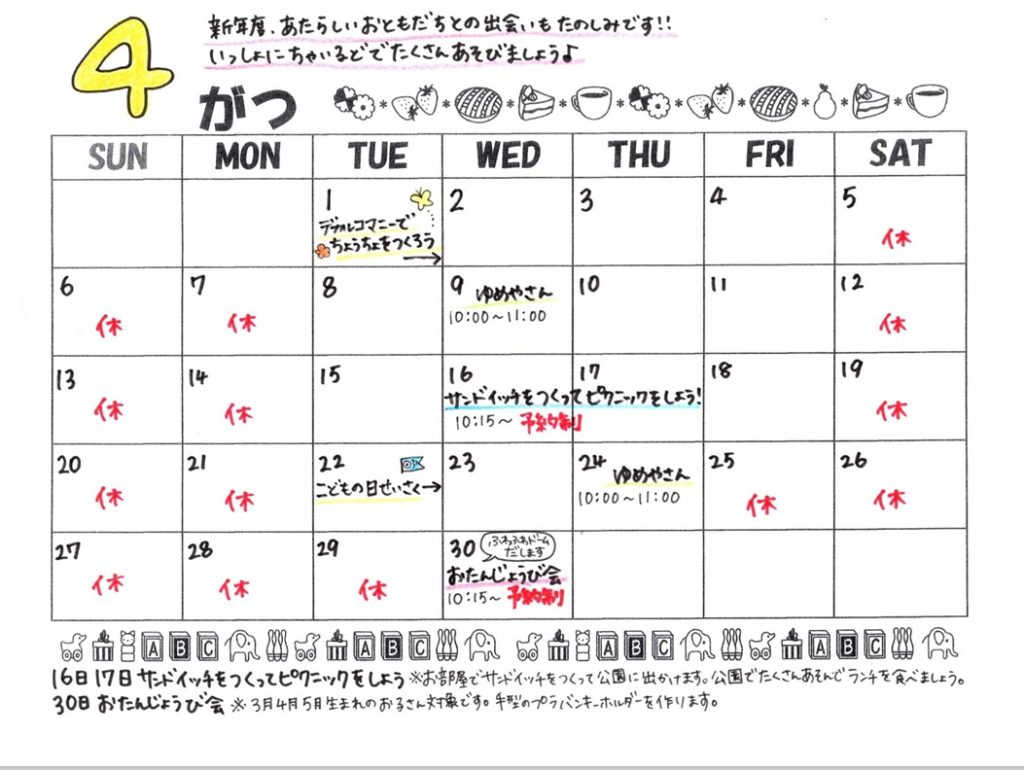 新年度、あたらしいおともだちとの出会いもたのしみです!!
いっしょにちゃいるどでたくさんあそびましょう♪
4がつ
SUN MON TUE WED THU FRI SAT
1 2 3 4 5
デカルコマニーで
ちょうちょをつくろう
→
休
6 7 8 9 ゆめやさん 10 11 12
休 休 10:00〜11:00 休
13 14 15 16 17 18 19
サンドイッチをつくってピクニックをしよう!
休 休 10:15〜 予約制 休
20 21 22 23 24 25 26
ゆめやさん
こどもの日せいさく→
休 休 10:00〜11:00 休 休
27 28 29 30 ふわふわドーム
だします
おたんじょうび会
休 休 休 10:15〜 予約制
A B C A B C A B C A B C
16日17日 サンドイッチをつくってピクニックをしよう ※お部屋でサンドイッチをつくって公園に出かけます。公園でたくさんあそんでランチを食べましょう。
30日 おたんじょうび会 ※3月4月5月生まれのお子さん対象です。手型のプラバンキーホルダーを作ります。